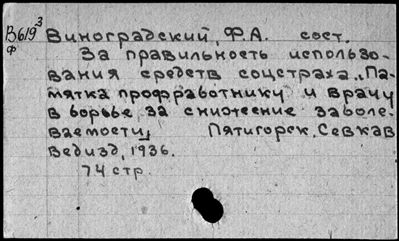 В619³ Виноградский, Ф.А. сост.
ф
За правильность использо-
вания средств соцстраха. Па-
мятка профработнику и врачу
в борьбе за снижение заболе-
ваемости, Пятигорск. Севкав
ведизд, 1936.
74 стр.